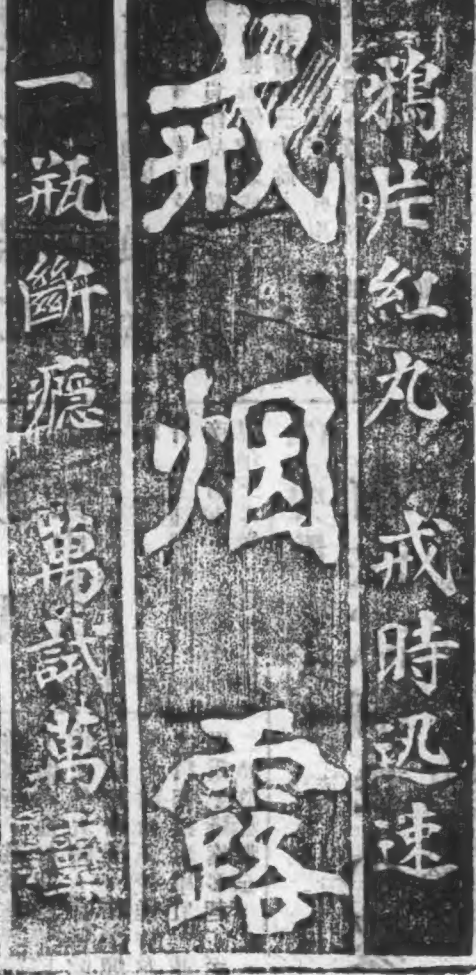 鴉片紅丸 戒時迅速
戒烟露
一瓶斷癮 萬試萬靈